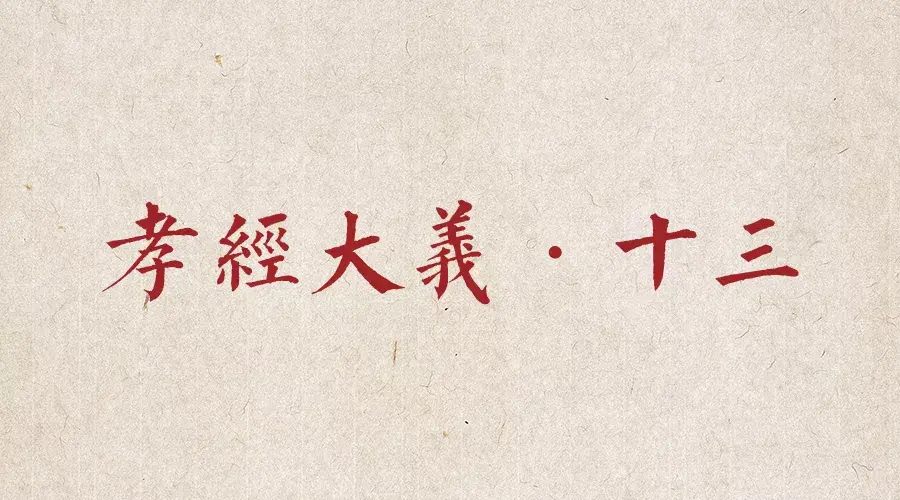 孝經大義·十三